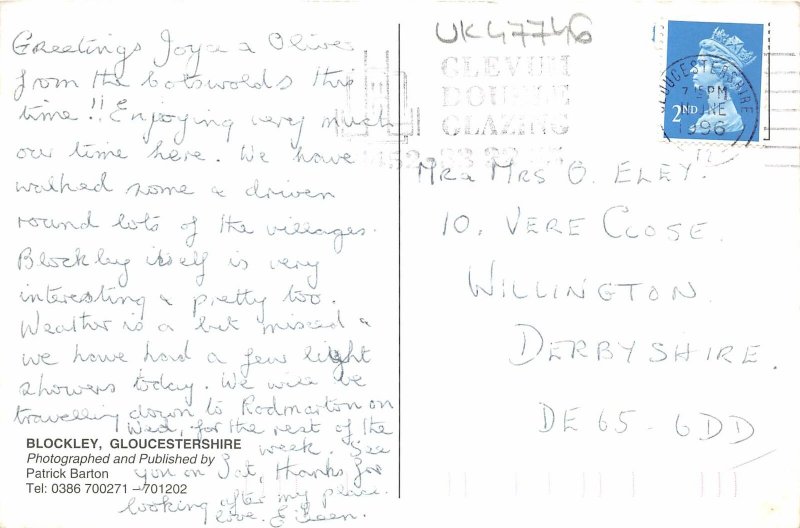 Greetings Joyce & Oliver
from the Cotswolds this
time!! Enjoying very much
our time here. We have
walked some & driven
round lots of the villages.
Blockley itself is very
interesting & pretty too.
Weather is a bit mixed &
we have had a few light
showers today. We will be
travelling down to Rodmarton on
Wed, for the rest of the
week. See
you on Sat, thanks for
looking after my place.
love. Eileen.
BLOCKLEY, GLOUCESTERSHIRE
Photographed and Published by
Patrick Barton
Tel: 0386 700271 – 701202
UK47746
CLEVUM
DOUBLE
GLAZING
GLOUCESTERSHIRE
7.15PM
JNE
1996
2ND
Mr & Mrs O. ELEY.
10, VERE CLOSE.
WILLINGTON.
DERBYSHIRE.
DE65-6DD